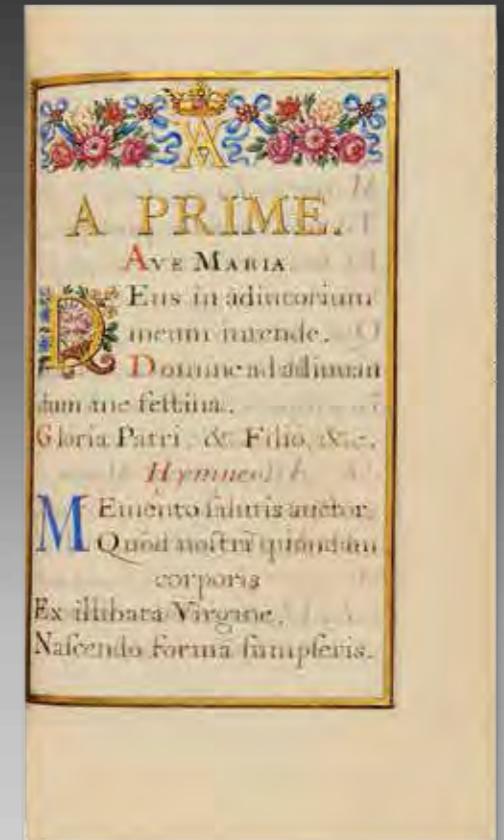 A PRIME.
AVE MARIA.
DEus in adiutorium
meum intende.
Domine ad adiuuan
dum me festina.
Gloria Patri, & Filio, &c.
Hymne.
MEmento salutis auctor,
Quod nostri quondam
corporis
Ex illibata Virgine,
Nascendo formā sumpseris.